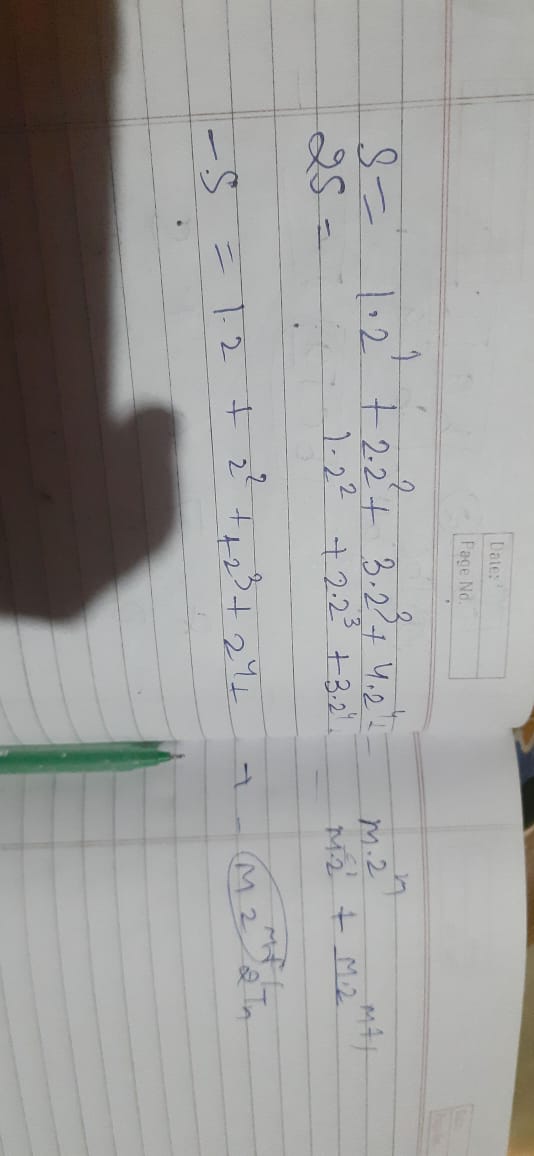 Date:
Page No.
S = 1·2¹ + 2·2² + 3·2³ + 4·2⁴ + - n·2ⁿ
2S = 1·2² + 2·2³ + 3·2⁴ - + n·2ⁿ⁺¹
-S = 1·2 + 2² + + 2³ + 2⁴ + + - n 2ⁿ⁺¹